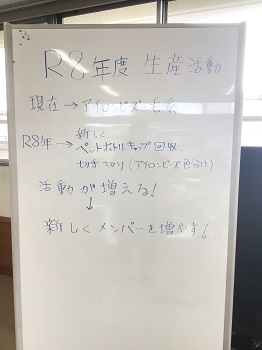 R8年度 生産活動
現在→アイロンビーズ・毛糸
R8年→新しく
ペットボトルキャップ回収
(アイロンビーズ色分け)
活動が増える!
↓
新しくメンバーを増やす!